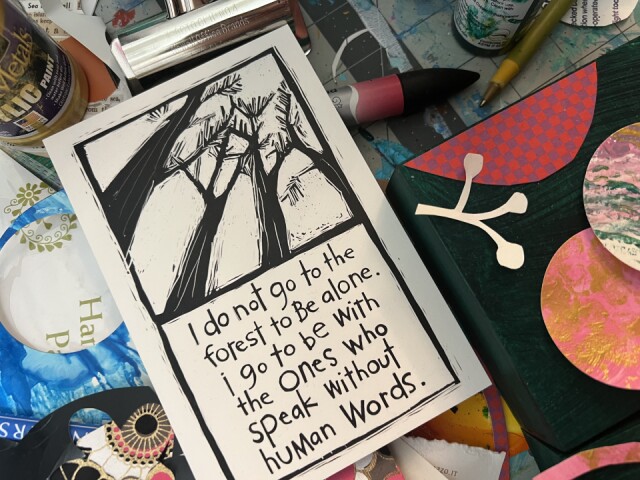 I do not go to the
forest to Be alone.
i go to be with
the ones who
speak without
huMan Words.